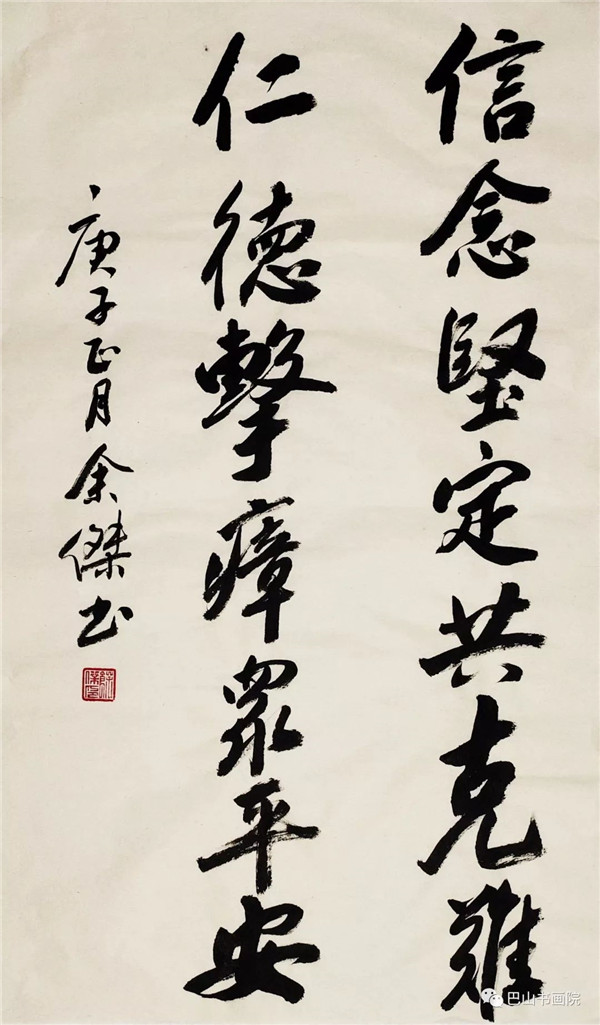 信念堅定共克難
仁德擊瘴眾平安
庚子正月余傑书
巴山书画院